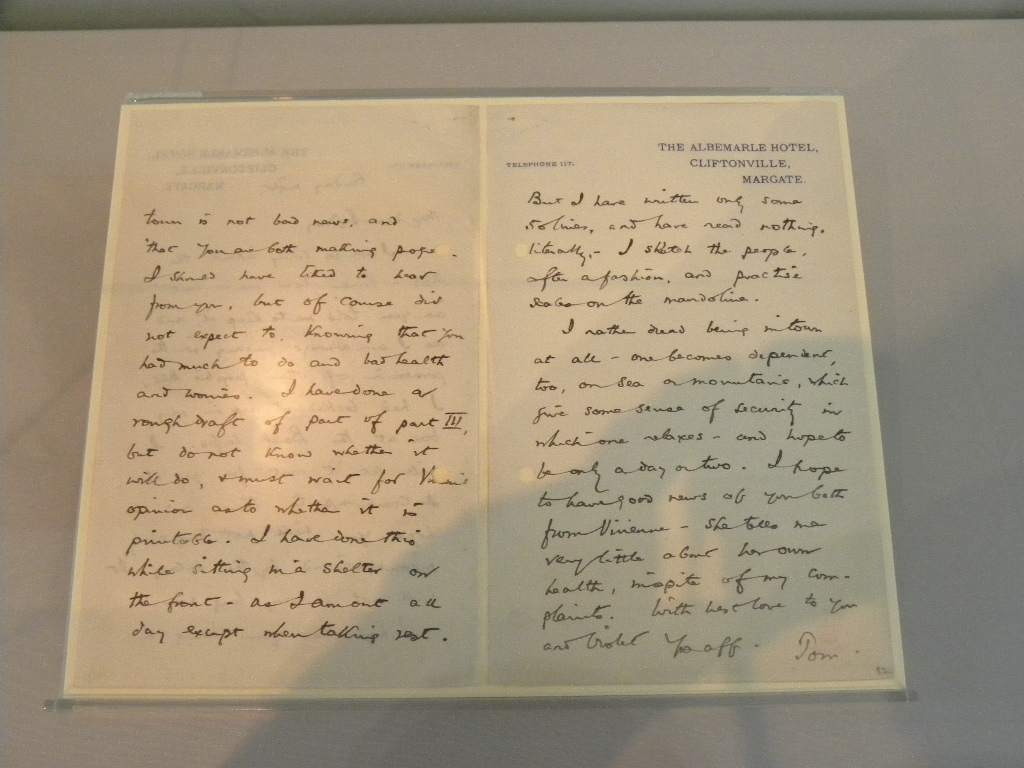 town is not bad news, and
that you are both making prog
I should have liked to hear
from you, but of course did
not expect to, knowing that you
had much to do and bad health
and worries. I have done a
rough draft of part of part III,
but do not know whether it
will do, & must wait for Vivien's
opinion as to whether it is
printable. I have done this
while sitting in a shelter on
the front - as I am out all
day except when taking rest.
TELEPHONE 117.
THE ALBEMARLE HOTEL,
CLIFTONVILLE,
MARGATE.
But I have written only some
50 lines, and have read nothing,
literally, - I sketch the people,
after a fashion, and practise
scales on the mandoline.
I rather dread being in town
at all - one becomes dependent,
too, on sea or mountains, which
give some sense of security in
which one relaxes - and hope to
be only a day or two. I hope
to have good news of you both
from Vivienne - she tells me
very little about her own
health, in spite of my com-
plaints. With best love to you
and Violet Yr aff. Tom.